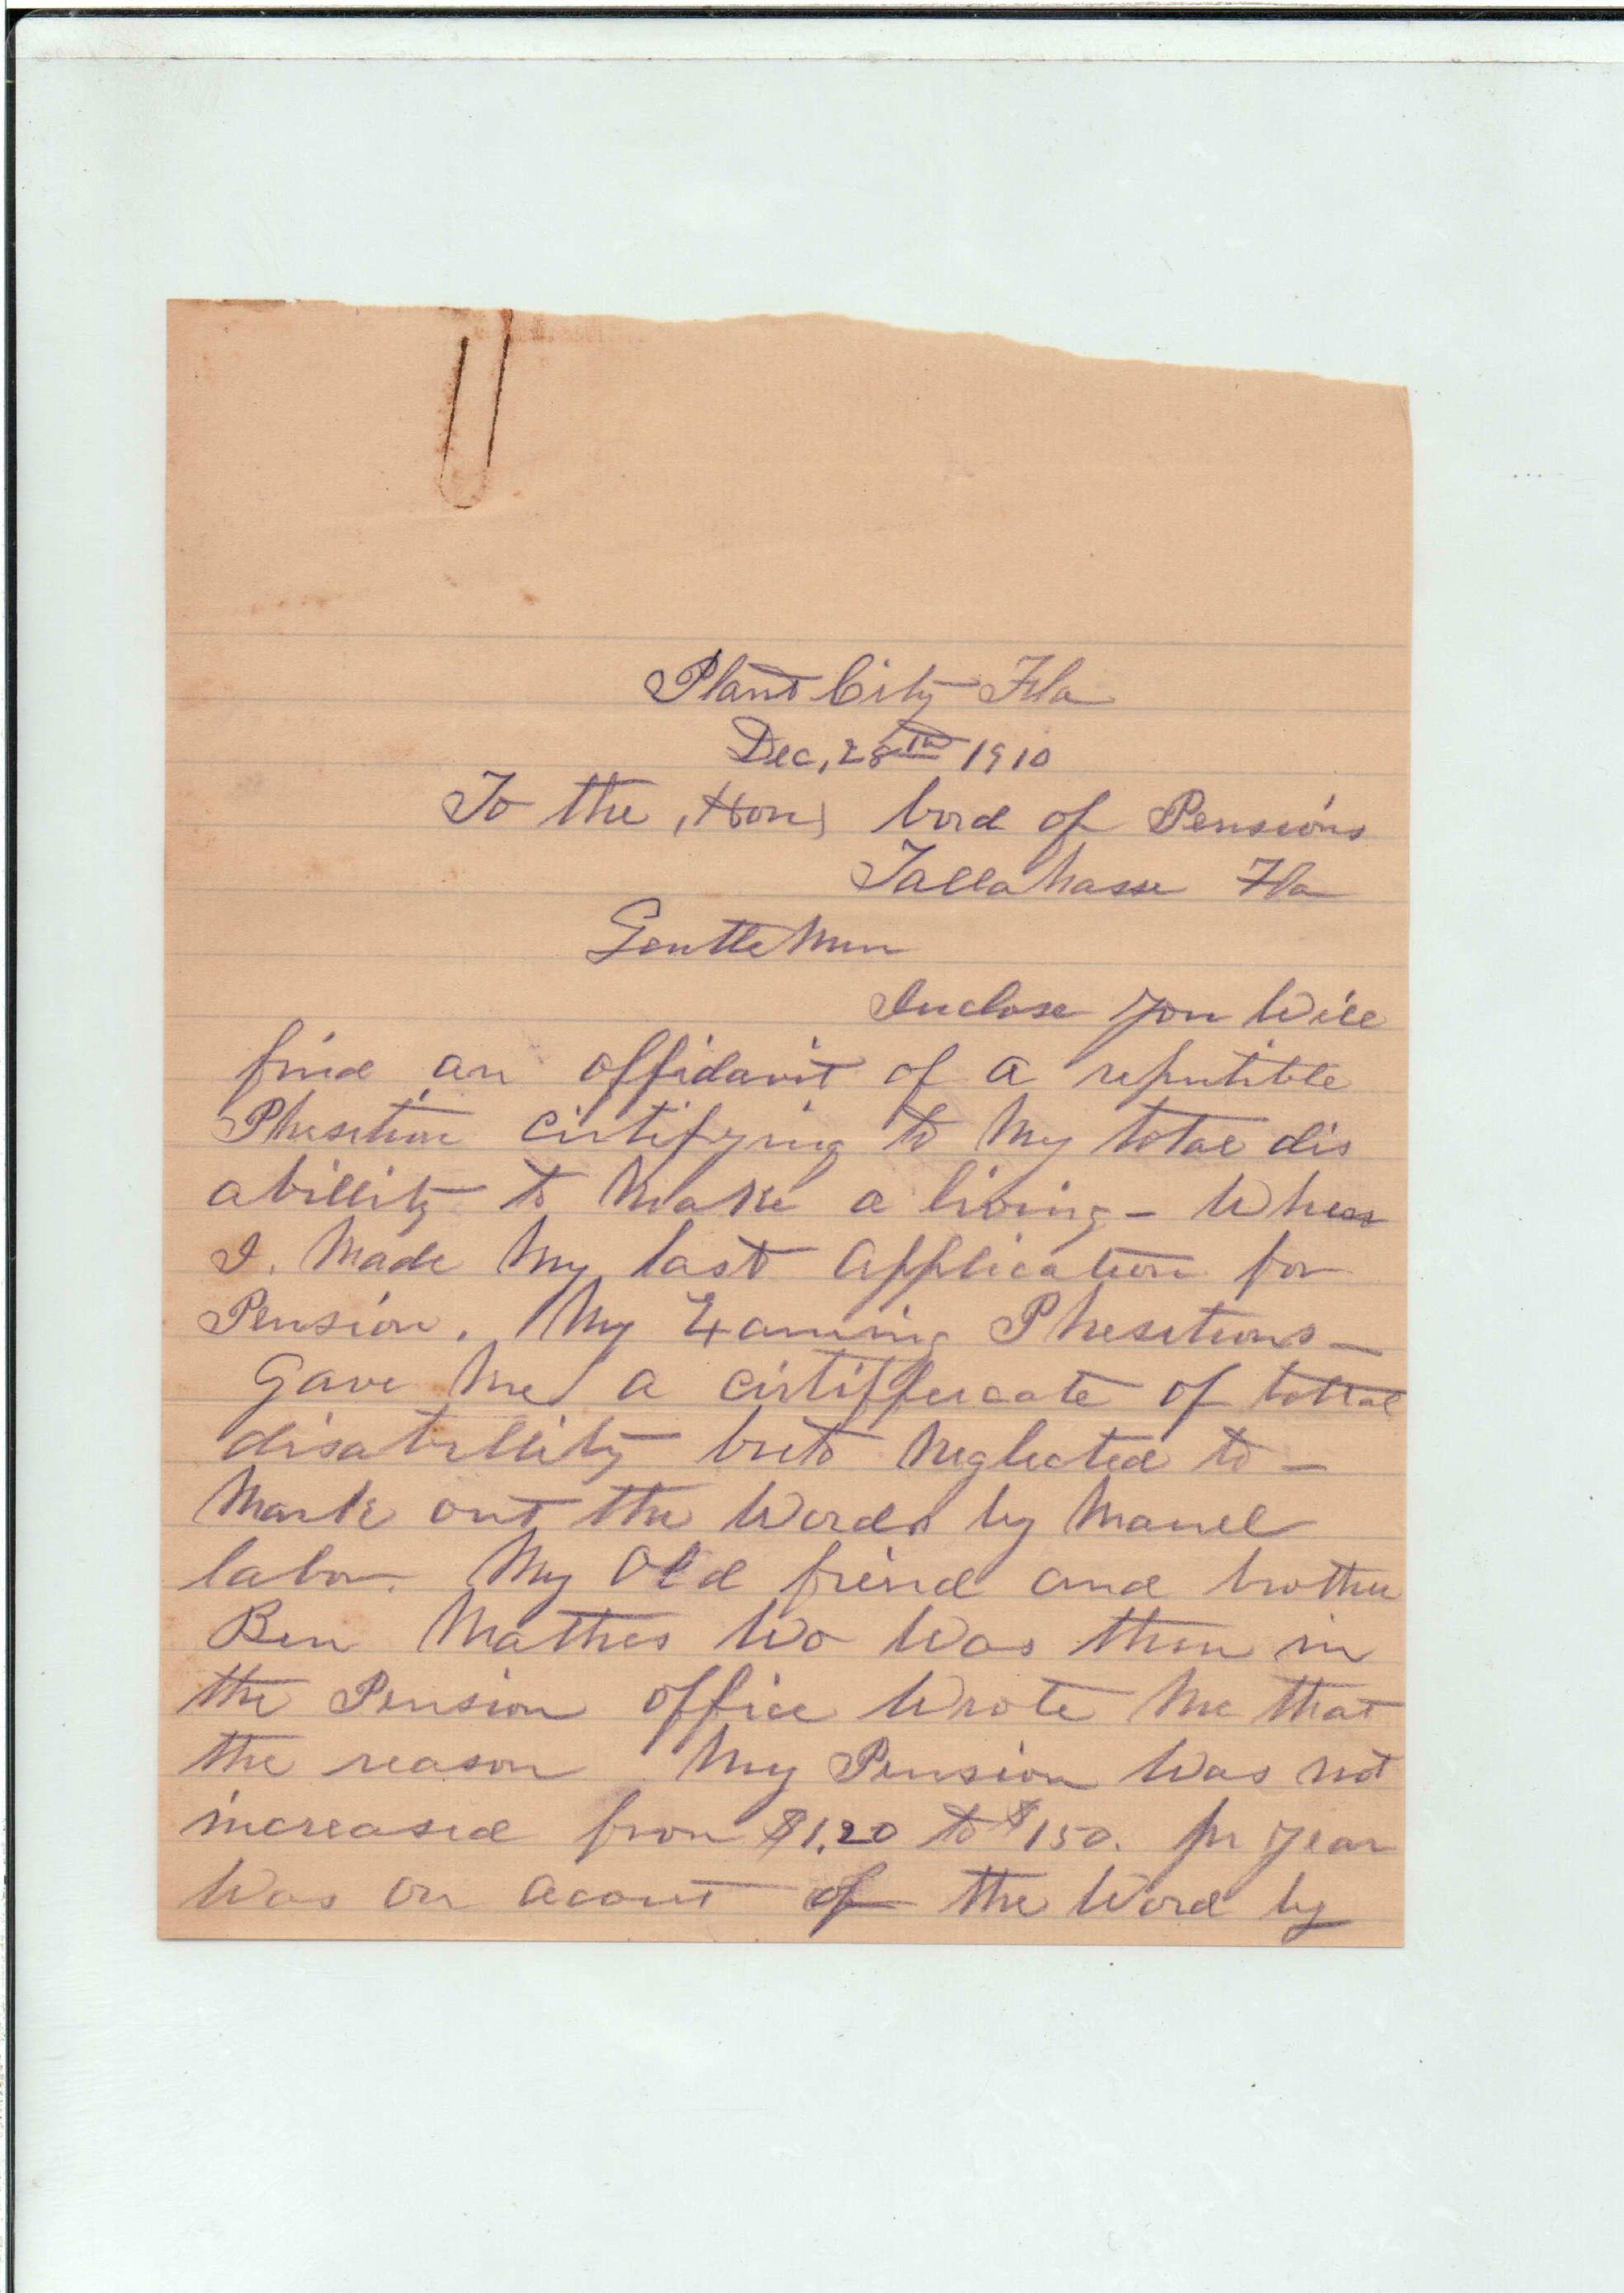 Plant City Fla
Dec, 28th 1910
To the, Hon, bord of Pensions
Tallahasse Fla
Gentlemen
Inclose you will
find an affidavit of a reputible
Phesition cirtifying to My total dis
abillity to Make a living - When
I. Made My last application for
Pension. My Examing Phesitions -
Gave Me a cirtifficate of tottal
disabillity but Neglected to -
Mark out the Words by Manel
labor. My Old friend and brother
Ben Mathes Wo Was then in
the Pension office Wrote Me that
the reason My Pension Was not
increased from $1.20 to $150. pr year
Was on acount of the Word by